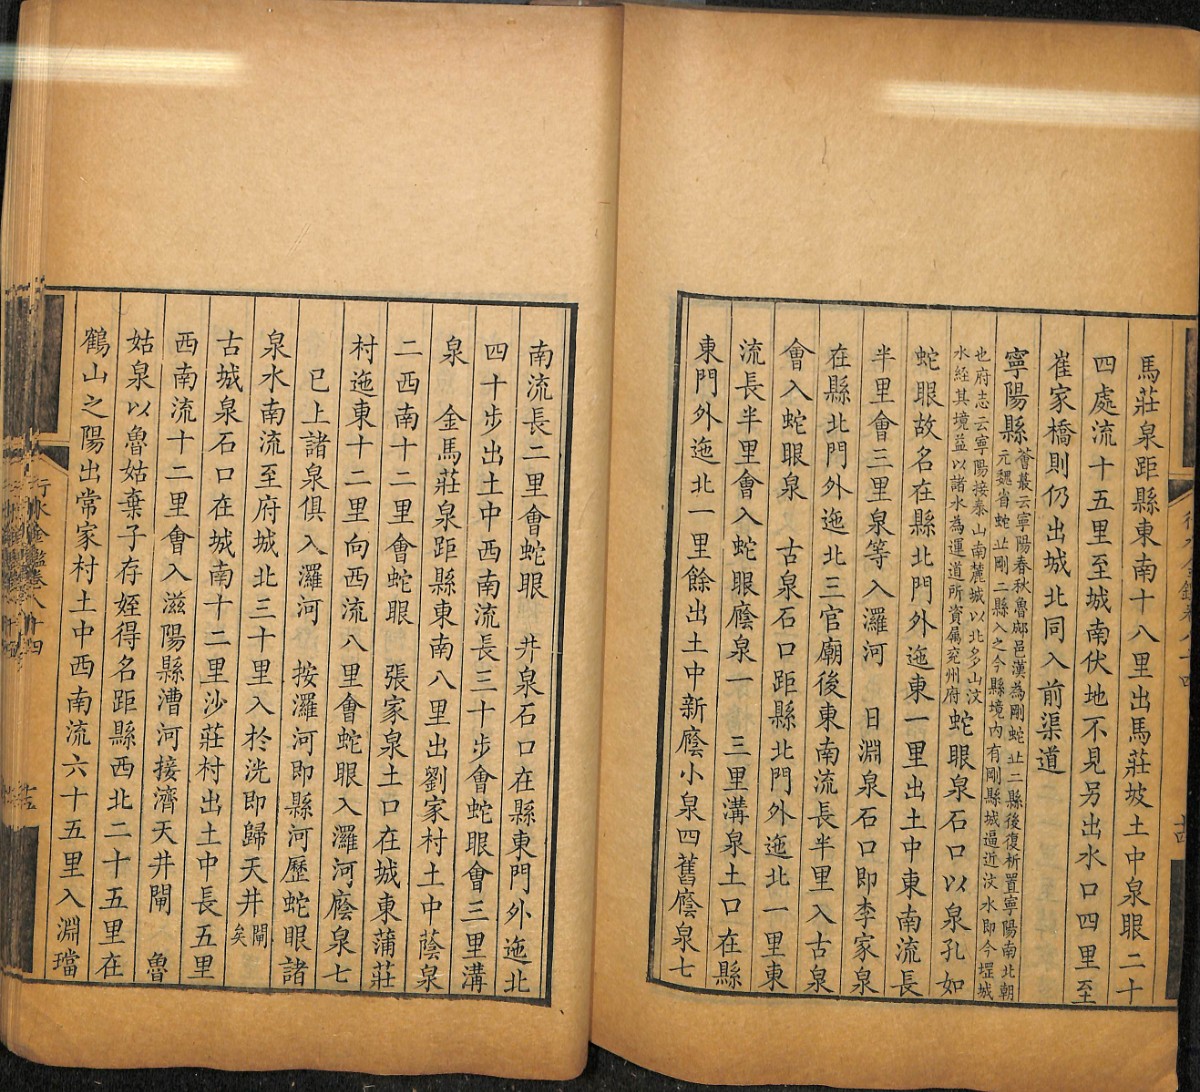 馬莊泉距縣東南十八里出馬莊坡土中泉眼二十
四處流十五里至城南伏地不見另出水口四里至
崔家橋則仍出城北同入前渠道
寧陽縣
薈蕞云寧陽春秋魯郕邑漢為剛蛇丠二縣後復析置寧陽南北朝
元魏省蛇丠剛二縣入之今縣境內有剛縣城逼近汶水即今堽城
也府志云寧陽接泰山南麓城以北多山汶
水經其境益以諸水為運道所資屬兖州府
蛇眼泉石口以泉孔如
蛇眼故名在縣北門外迤東一里出土中東南流長
半里會三里泉等入灅河　日淵泉石口即李家泉
在縣北門外迤北三官廟後東南流長半里入古泉
會入蛇眼泉　古泉石口距縣北門外迤北一里東
流長半里會入蛇眼廕泉一　三里溝泉土口在縣
東門外迤北一里餘出土中新廕小泉四舊廕泉七
十四
南流長二里會蛇眼　井泉石口在縣東門外迤北
四十步出土中西南流長三十步會蛇眼會三里溝
泉　金馬莊泉距縣東南八里出劉家村土中蔭泉
二西南十二里會蛇眼　張家泉土口在城東蒲莊
村迤東十二里向西流八里會蛇眼入灅河廕泉七
已上諸泉俱入灅河　按灅河即縣河歷蛇眼諸
泉水南流至府城北三十里入於洸即歸天井閘矣
古城泉石口在城南十二里沙莊村出土中長五里
西南流十二里會入滋陽縣漕河接濟天井閘　魯
姑泉以魯姑棄子存姪得名距縣西北二十五里在
鶴山之陽出常家村土中西南流六十五里入淵璫
行水金鑑卷八十四